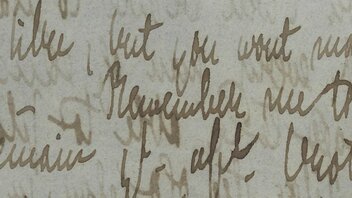 like, but you wont
Remember me to
emain yr. afft. Brot